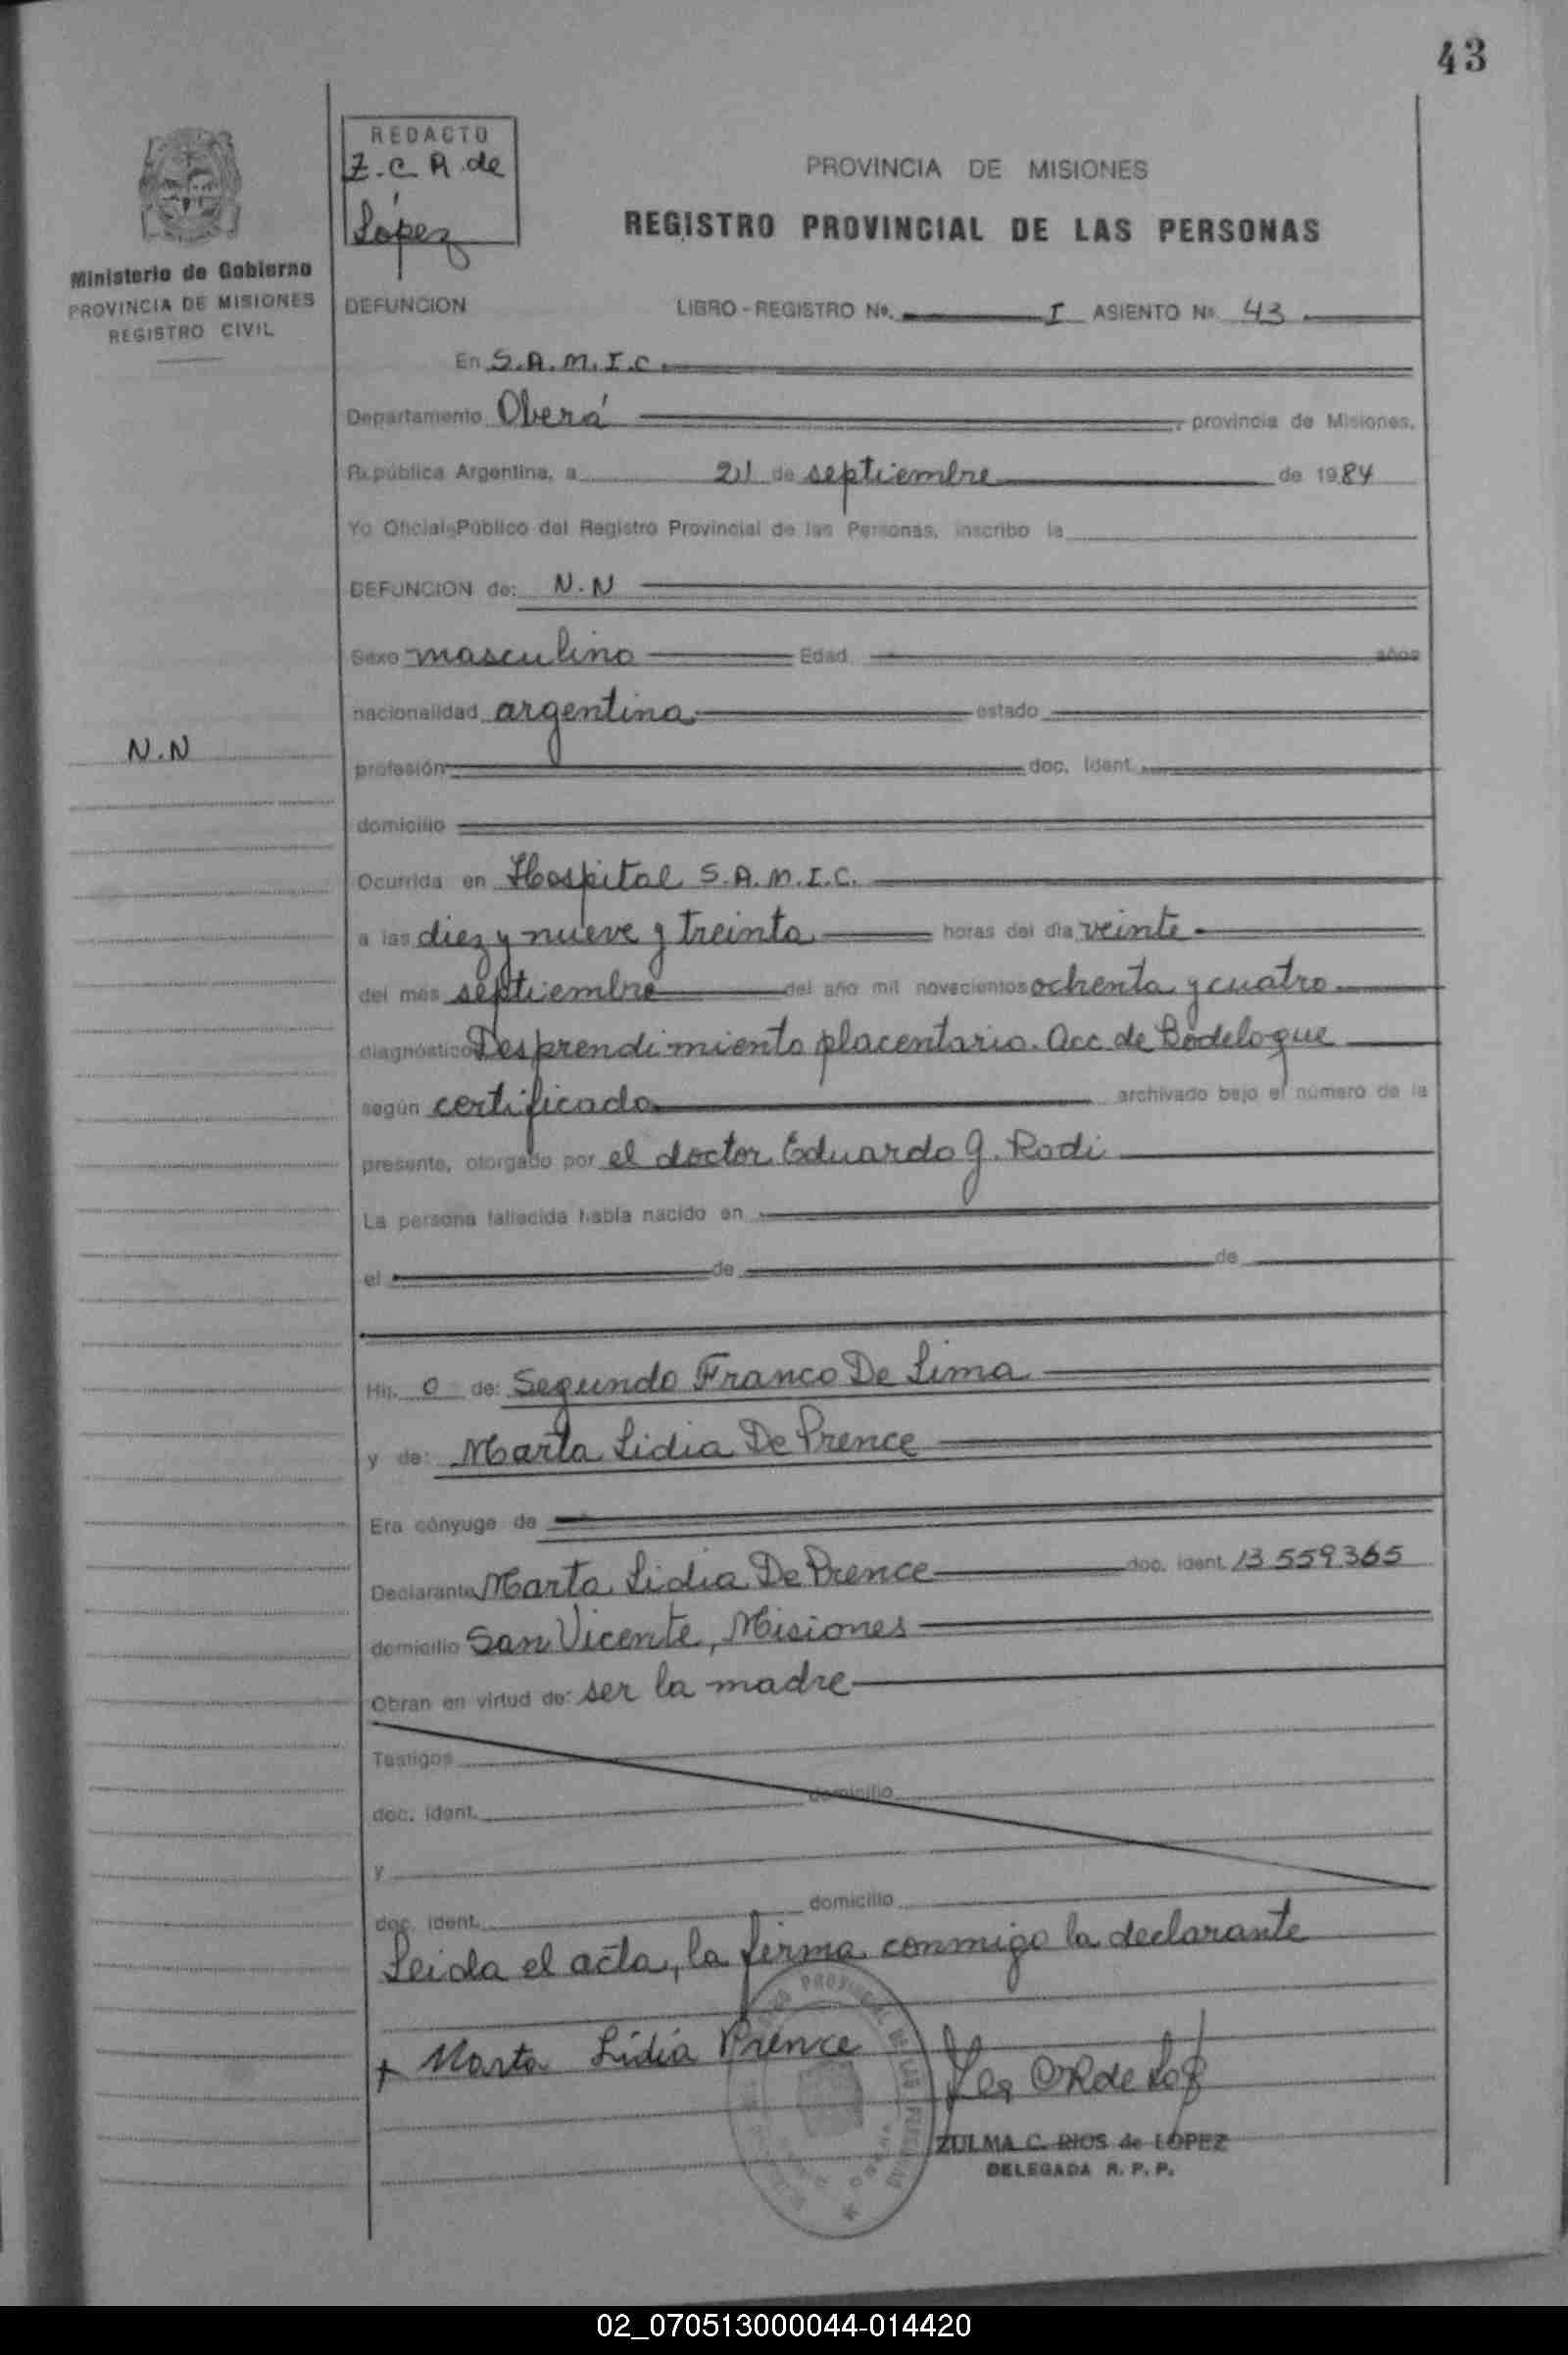 43
REDACTO
Z.C R. de
López
PROVINCIA DE MISIONES
REGISTRO PROVINCIAL DE LAS PERSONAS
Ministerio de Gobierno
PROVINCIA DE MISIONES
REGISTRO CIVIL
DEFUNCION LIBRO - REGISTRO Nº. I ASIENTO Nº 43
En S.A.M.I.C.
Departamento Oberá, provincia de Misiones,
República Argentina, a 21 de septiembre de 1984
Yo Oficial Público del Registro Provincial de las Personas, inscribo la
DEFUNCION de: N.N
Sexo masculino Edad años
nacionalidad argentina estado
N.N
profesión doc. ident.
domicilio
Ocurrida en Hospital S.A.M.I.C.
a las diez y nueve y treinta horas del día veinte
del mes septiembre del año mil novecientos ochenta y cuatro
diagnóstico Desprendimiento placentario. Acc. de Bodeloque
según certificado archivado bajo el número de la
presente, otorgado por el doctor Eduardo G. Rodi
La persona fallecida había nacido en
el de de
Hij o de: Segundo Franco De Lima
y de: Marta Lidia De Prence
Era cónyuge de
Declarante Marta Lidia De Prence doc. ident. 13 559.365
domicilio San Vicente, Misiones
Obran en virtud de: ser la madre
Testigos
doc. ident. domicilio
y
doc. ident. domicilio
Leida el acta, la firma conmigo la declarante
+ Marta Lidia Prence
ZULMA C. RIOS de LOPEZ
DELEGADA R. P. P.
02_070513000044-014420